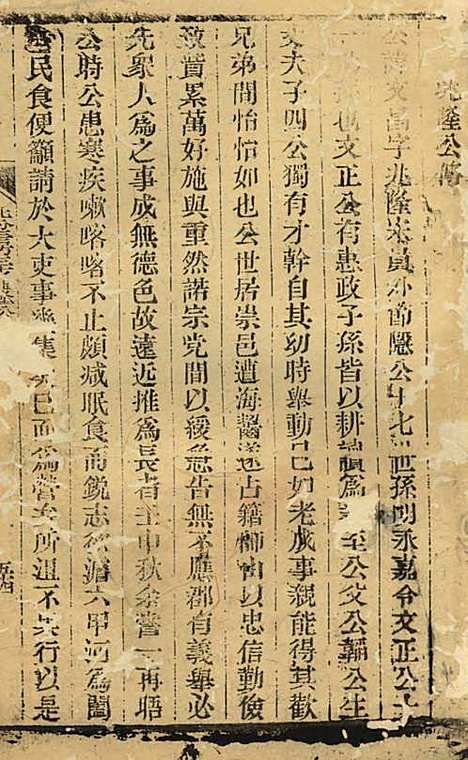 兆隆公傳
公諱文萬字兆隆宋員外節隱公十九世孫明永嘉令文正公
也文正公有惠政子孫皆以耕讀爲至公父公韜公生
丈夫子四公獨有才幹自其幼時舉動已如老成事親能得其歡
兄弟間怡怡如也公世居崇邑遭海醫遂占籍以忠信勤儉
致貲累萬好施與重然諾宗党間以緩急告無不應郡有義舉必
先衆人爲之事成無德色故遠近推爲長者壬申秋余嘗一再晤
公時公患寒疾嗽咯咯不止頗减眠食而鋭志於濬六甲河爲闔
邑民食便籲請於大吏事集已而爲營弁所沮不果行以是
五四